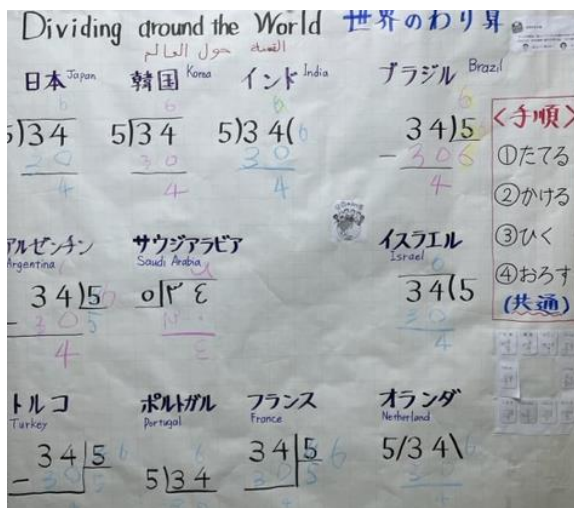 Dividing around the World 世界のわり算
القسمة حول العالم
日本 Japan
6
5)34
30
4
韓国 Korea
6
5)34
30
4
インド India
6
5)34(6
30
4
ブラジル Brazil
34)5
- 30 6
4
<手順>
①たてる
②かける
③ひく
④おろす
(共通)
アルゼンチン
Argentina
34)5
- 30
4
サウジアラビア
Saudi Arabia
٣٤
٤
イスラエル
Israel
6
34(5
30
4
トルコ
Turkey
34|5 6
- 30
ポルトガル
Portugal
6
5)34
フランス
France
34|5 6
オランダ
Netherland
5/34\6
30